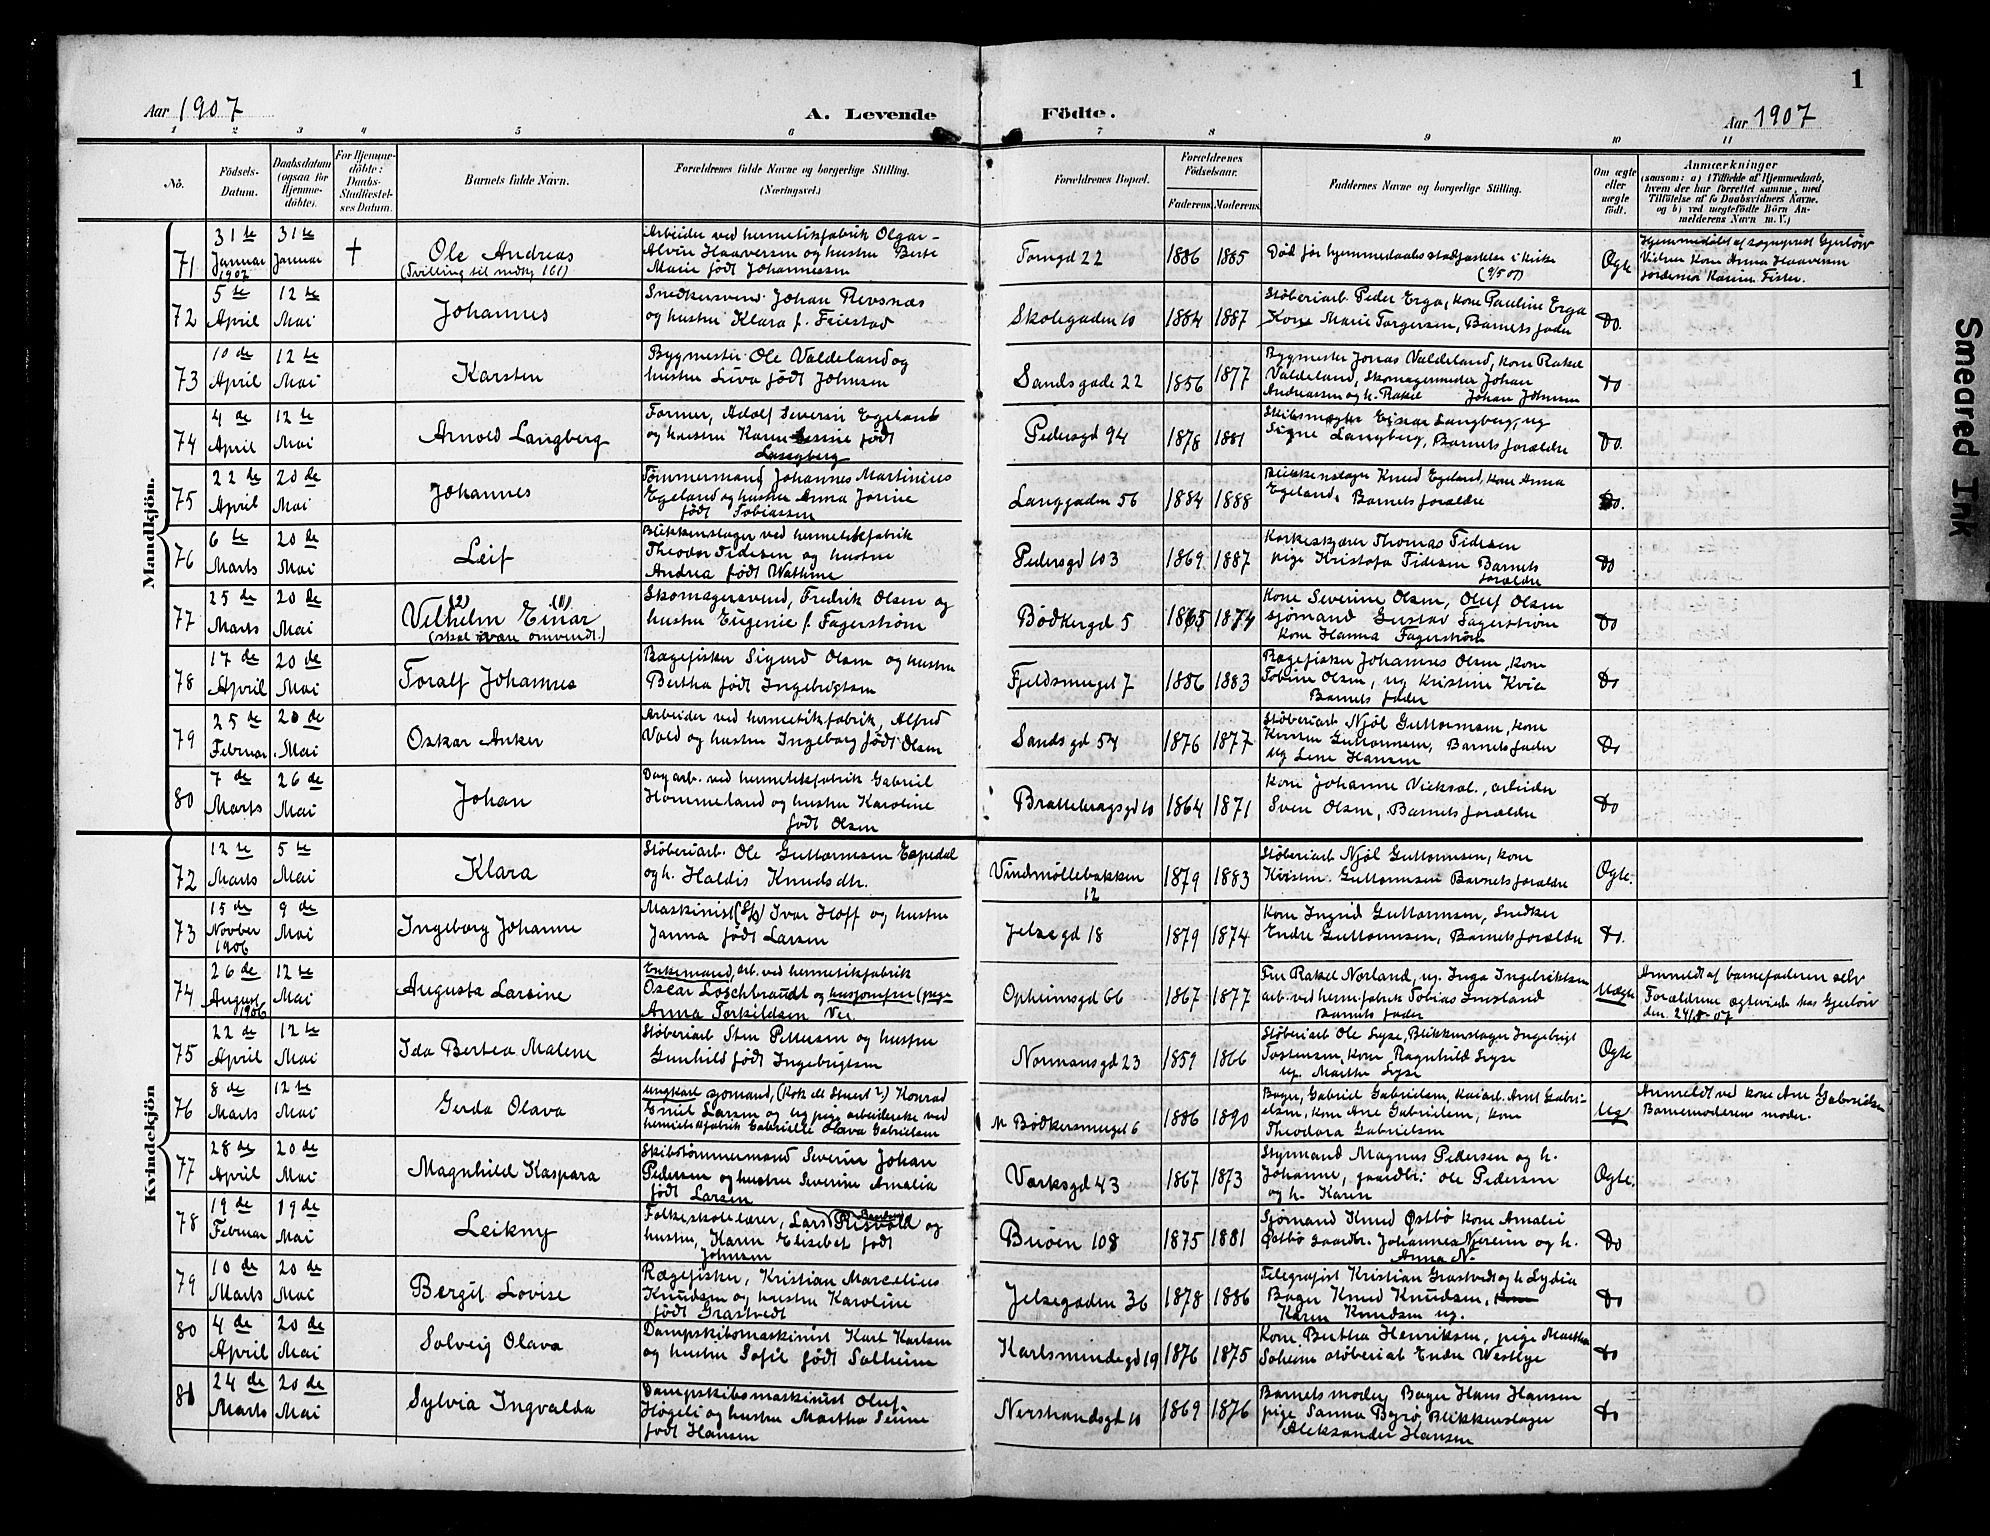 1
Aar 1907
A. Levende Födte.
Aar 1907
1 2 3 4 5 6 7 8 9 10 11
No.
Födsels-Datum.
Daabsdatum (ogsaa for Hjemmedöbte).
For Hjemmedöbte: Daabs-Stadfæstelses Datum.
Barnets fulde Navn.
Forældrenes fulde Navne og borgerlige Stilling. (Næringsvei.)
Forældrenes Bopæl.
Forældrenes Födselsaar.
Faderens. Moderens.
Faddernes Navne og borgerlige Stilling.
Om ægte eller uægte födt.
Anmærkninger
(saasom: a) i Tilfælde af Hjemmedaab, hvem der har forrettet samme, med Tilföielse af to Daabsvidners Navne. og b) ved uægtefödte Börn Anmelderens Navn m. V.)
Mandkjön.
71 31te Januar 1907 31te Januar † Ole Andreas (Tvilling til nedkg 161) Arbeider ved hermetikfabrik Olgar Alvin Haaversen og hustru Berte Marie født Johannessen Torvgd 22 1886 1885 Død før hjemmedaabs stadfæstelse i kirke (9/5 07) Ægte Hjemmedøbt af sogneprest Gjerløw Vidner Kone Anna Haaversen Jordemor Karen Fister.
72 5te April 12te Mai Johannes Snedkersvend Johan Revsnæs og hustru Klara f. Feiestad Skolegaden 10 1884 1887 Støberiarb. Peder Erga, kone Pauline Erga Kone Marie Torgersen, Barnets fader Do.
73 10de April 12te Mai Karsten Bygmester Ole Valdeland og hustru Siva født Johnsen Sandsgade 22 1856 1877 Bygmester Jonas Valdeland, kone Rakel Valdeland, Skomagermester Johan Andreassen og h. Rakel Johan Johnsen Do
74 4de April 12te Mai Arnold Langberg Former, Adolf Severin Egeland og hustru Karen født Langberg Pedersgd 94 1878 1881 Einar Langberg, ug Signe Langberg, Barnets forældre Do.
75 22de April 20de Mai Johannes Tømmermand Johannes Martinius Egeland og hustru Anna Jorine født Tobiassen Langgaden 56 1884 1888 Blikkenslager Knud Egeland, kone Anna Egeland, Barnets forældre Do.
76 6te Marts 20de Mai Leif Blikkenslager ved hermetikfabrik Theodor Tidesen og hustru Andrea født Wathne Pedersgd 103 1869 1887 Korkeskjærer Thomas Tidesen pige Kristofa Tidesen Barnets forældre Do
77 25de Marts 20de Mai Vilhelm (2) Einar (1) (skal være omvendt.) Skomagersvend, Fredrik Olsen og hustru Eugenie f. Fagerstrøm Bødkergd 5 1865 1874 Kone Severine Olsen, Oluf Olsen sjømand Gustav Fagerstrøm kone Hanna Fagerstrøm Do
78 17de April 20de Mai Toralf Johannes Røgefisker Sigurd Olsen og hustru Bertha født Ingebrigtsen Fjeldsmuget 7 1886 1883 Røgefisker Johannes Olsen, kone Tobine Olsen, ug Kristine Kvie Barnets fader Do
79 25de Februar 20de Mai Oskar Anker Arbeider ved hermetikfabrik, Alfred Vold og hustru Ingeborg født Olsen Sandsgd 54 1876 1877 Støberiarb Njøl Guttormsen, kone Kirsten Guttormsen, Barnets fader Ug Lene Hansen Do
80 7de Marts 26de Mai Johan Dagarb. ved hermetikfabrik Gabriel Hommeland og hustru Karoline født Olsen Brattebergsgd 10 1864 1871 kone Johanne arbeider Sven Olsen, Barnets forældre Do
Kvindekjön
72 12te Marts 5te Mai Klara Støberiarb. Ole Guttormsen Espedal og h. Haldis Knudsdtr. Vindmøllebakken 12 1879 1883 Støberiarb Njøl Guttormsen, kone Kirsten Guttormsen Barnets forældre Ægte.
73 15de Novber 1906 9de Mai Ingeborg Johanne Maskinist Ivar Hoff og hustru Janna født Larsen Jelsegd 18 1879 1874 Kone Ingrid Guttormsen, Snedker Endre Guttormsen, Barnets forældre Do.
74 26de August 1906 12te Mai Augusta Larsine Enkemand, arb. ved hermetikfabrik Oscar Loschbrandt og husjomfru (pige Anna Torkildsen Vee. Opheimsgd 66 1867 1877 Fru Rakel Norland, ug. Inga Ingebriktsen arb. ved hermetikfabrik Tobias Imsland Barnets fader Uægte Anmeldt af barnefaderen selv Forældrene ægteviede hos Gjerløw den 24/8-07
75 22de April 12te Mai Ida Bertea Malene Støberiarb Sten Pettersen og hustru Gunhild født Ingebrigtsen Normansgd 23 1859 1866 Støberiarb Ole Lyse, Blikkenslager Ingebrigt Tostensen, Kone Ragnhild Lyse ug. Marthe Lyse Ægte
76 8de Marts 12te Mai Gerda Olava ungkarl sjømand, (Kok ell Stuert?) Konrad Emil Larsen og ug pige arbeiderske ved hermetikfabrik Gabrielle Olava Gabrielsen N Bødkersmuget 6 1886 1890 Bager, Gabriel Gabrielsen, Kaiarb. Arnt Gabrielsen, kone Ane Gabrielsen, kone Theodora Gabrielsen Ug Anmeldt ved kone Ane Gabrielsen Barnemoderens moder.
77 28de April 20de Mai Magnhild Kaspara Skibstømmermand Severin Johan Pedersen og hustru Severine Amalia født Larsen Værksgd 43 1867 1873 Styrmand Magnus Pedersen og h. Johanne, gaardbr: Ole Pedersen og h. Karen Ægte.
78 19de Februar 19de Mai Leikny Folkeskolelærer, Lars Risvold og hustru, Karen Elisabet født Johnsen Buøen 108 1875 1881 Sjømand Knud Østbø kone Amalie Østbø gaardbr. Johannes Njereim og h. Anna N. Do
79 10de Marts 20de Mai Bergit Lovise Røgefisker, Kristian Marcelius Knudsen og hustru Karoline født Grastvedt Jelsegaden 36 1878 1886 Telegrafist Kristian Grastvedt og h Lydia Bager Knud Knudsen, Karen Knudsen ug. Do
80 4de April 20de Mai Solveig Olava Dampskibsmaskinist Karl Karlsen og hustru Sofie født Solheim Karlsmindegd 19 1876 1875 Kone Bertha Henriksen, pige Martha Soheim støberiarb Endre Westlye Do
81 24de Marts 20de Mai Sylvia Ingvalda Dampskibsmaskinist Oluf Høgeli og hustru Martha Serine født Hansen Nerstrandsgd 10 1869 1876 Barnets moder, Bager Hans Hansen pige Sanna Byrø, Blikkenslager Aleksander Hansen Do
Smeared Ink